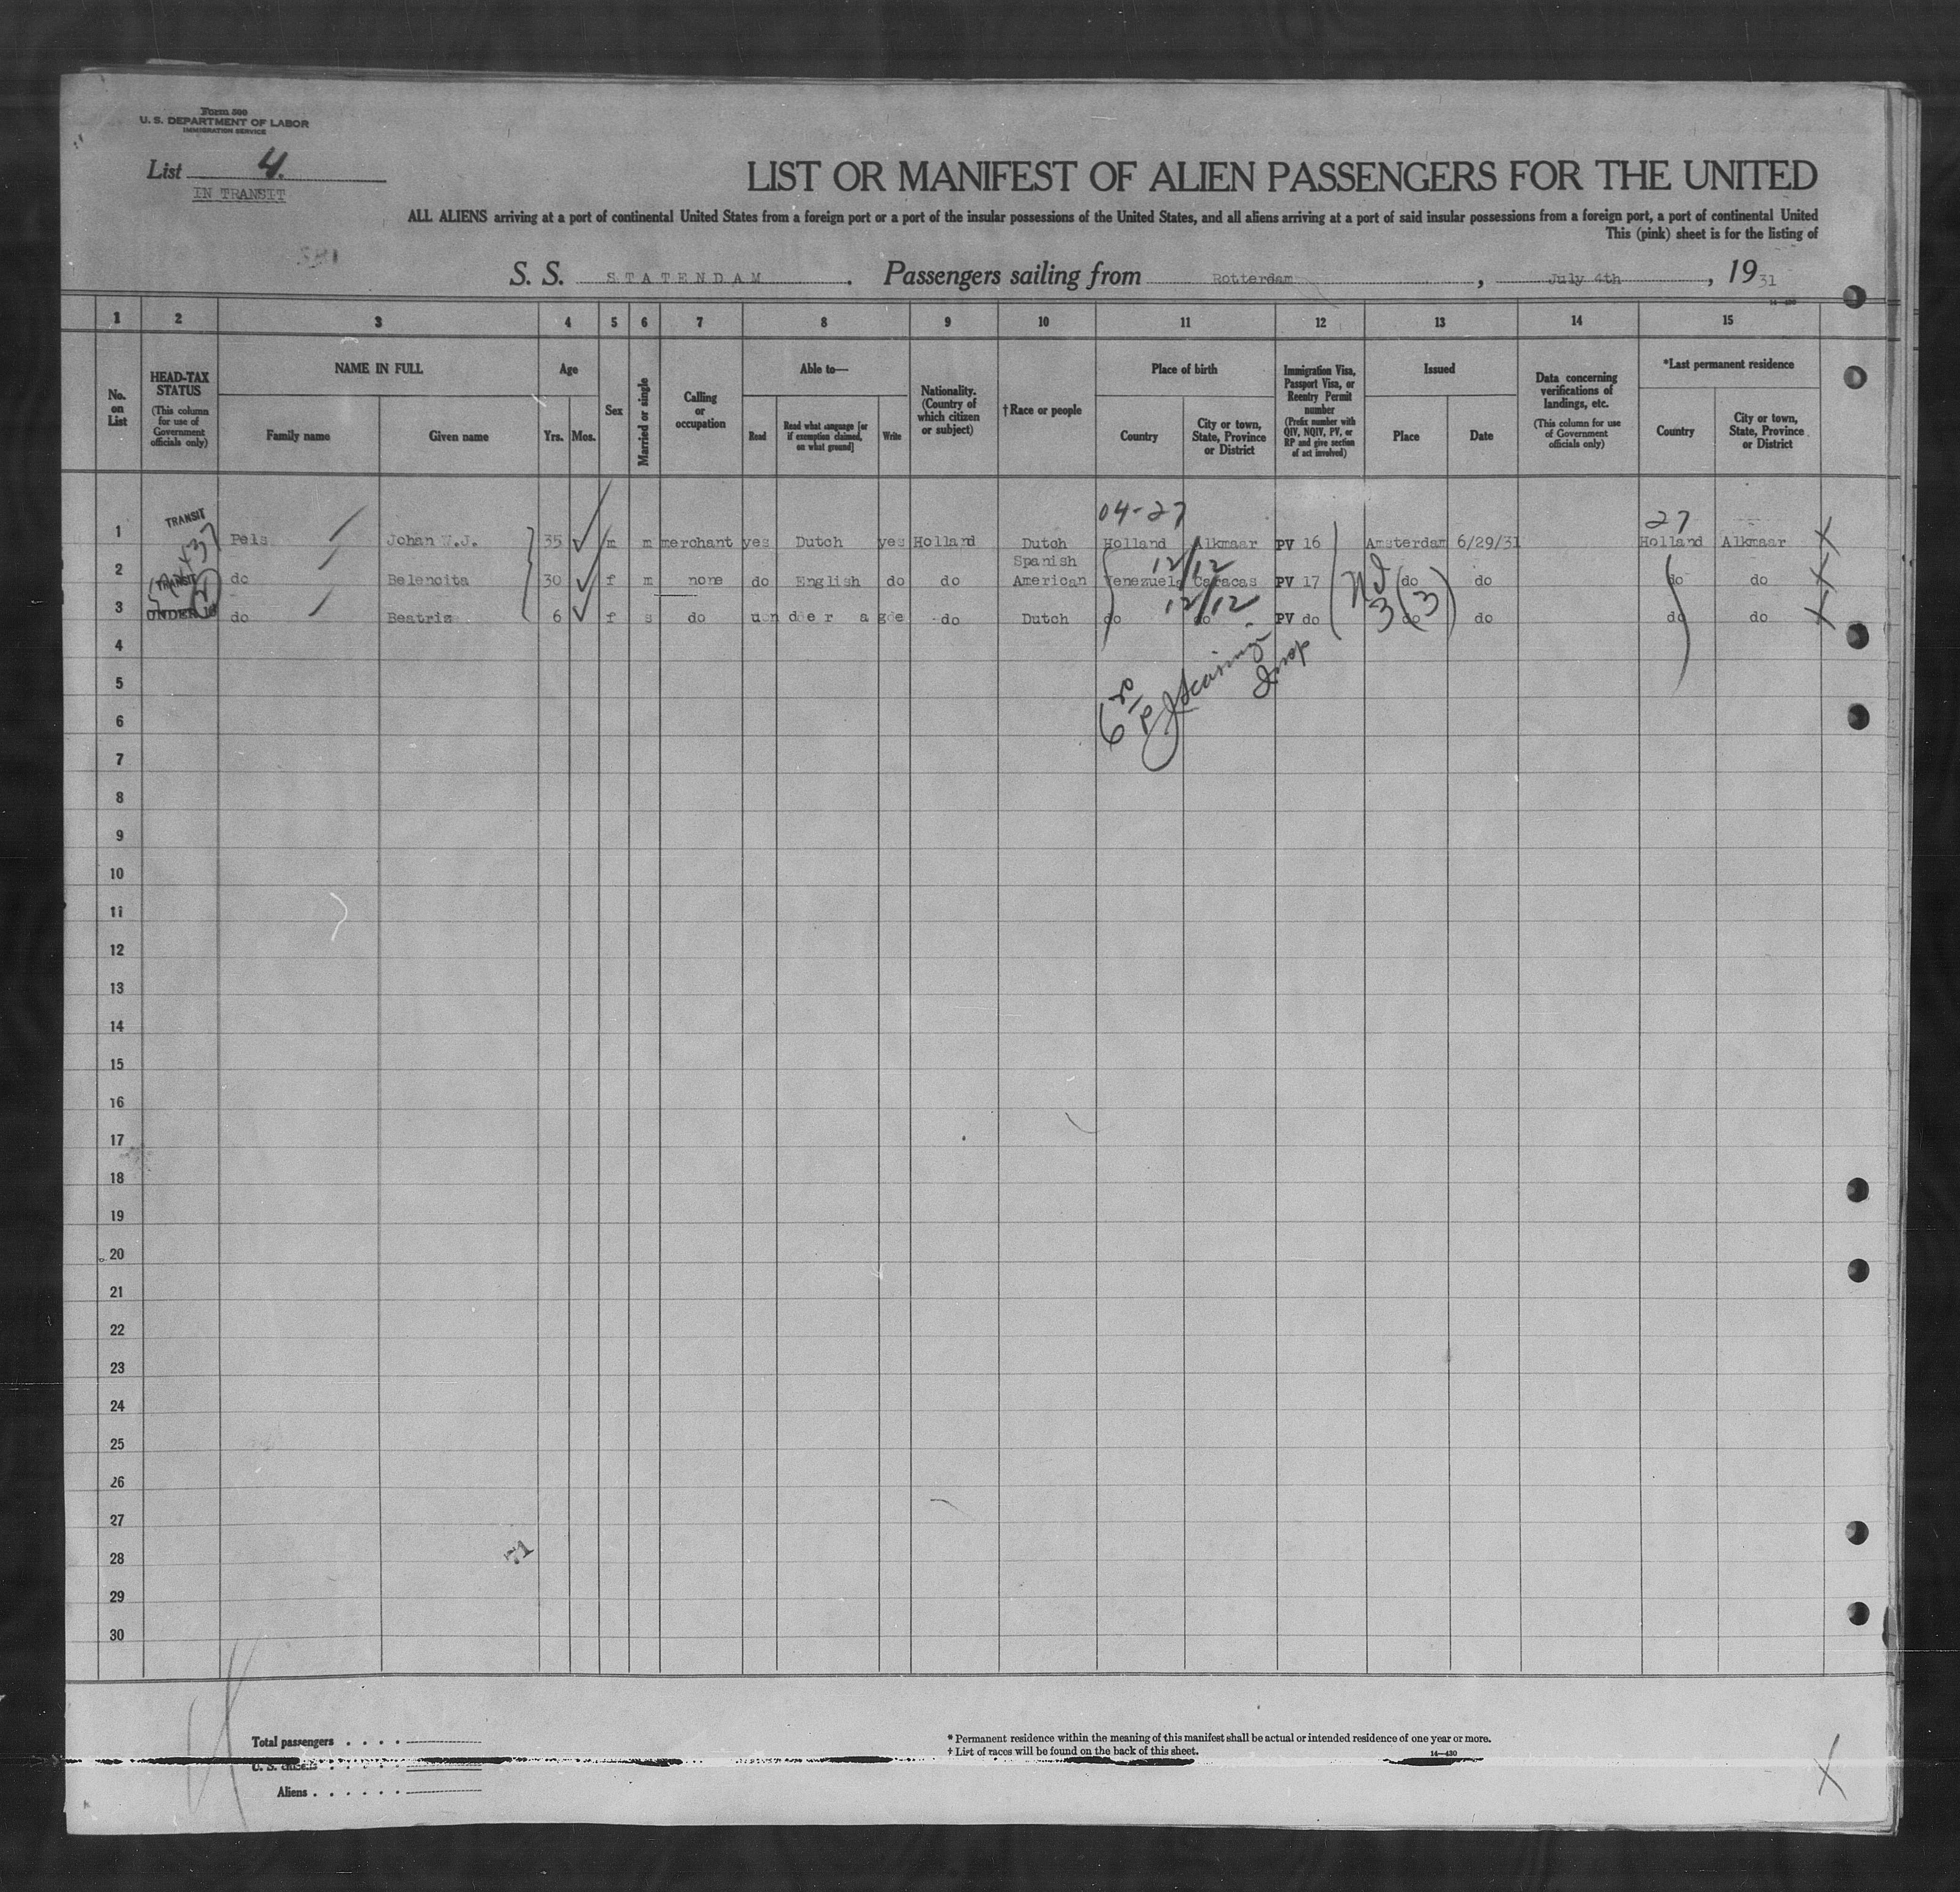 Form 500
U. S. DEPARTMENT OF LABOR
IMMIGRATION SERVICE
List 4.
IN TRANSIT
LIST OR MANIFEST OF ALIEN PASSENGERS FOR THE UNITED
ALL ALIENS arriving at a port of continental United States from a foreign port or a port of the insular possessions of the United States, and all aliens arriving at a port of said insular possessions from a foreign port, a port of continental United
This (pink) sheet is for the listing of
S. S. STATENDAM. Passengers sailing from Rotterdam, July 4th, 1931
14-430
1 2 3 4 5 6 7 8 9 10 11 12 13 14 15
No. on List
HEAD-TAX STATUS (This column for use of Government officials only)
NAME IN FULL Family name Given name
Age Yrs. Mos.
Sex
Married or single
Calling or occupation
Able to— Read Read what language [or if exemption claimed, on what ground] Write
Nationality. (Country of which citizen or subject)
†Race or people
Place of birth Country City or town, State, Province or District
Immigration Visa, Passport Visa, or Reentry Permit number (Prefix number with QIV, NQIV, PV, or RP and give section of act involved)
Issued Place Date
Data concerning verifications of landings, etc. (This column for use of Government officials only)
*Last permanent residence Country City or town, State, Province or District
04-27 27
1 TRANSIT Pels Johan W.J. 35 m m merchant yes Dutch yes Holland Dutch Holland Alkmaar PV 16 Amsterdam 6/29/31 Holland Alkmaar X
12/12
2 TRANSIT do Belencita 30 f m none do English do do Spanish American Venezuela Caracas PV 17 do do do do X
12/12 3 (3)
3 UNDER 16 do Beatris 6 f s do under age do Dutch do do PV do do do do do X
4
5
6
7
8
9
10
11
12
13
14
15
16
17
18
19
20
21
22
23
24
25
26
27
28
29
30
71
Total passengers
U. S. citizens
Aliens
* Permanent residence within the meaning of this manifest shall be actual or intended residence of one year or more.
† List of races will be found on the back of this sheet.
14—430
X